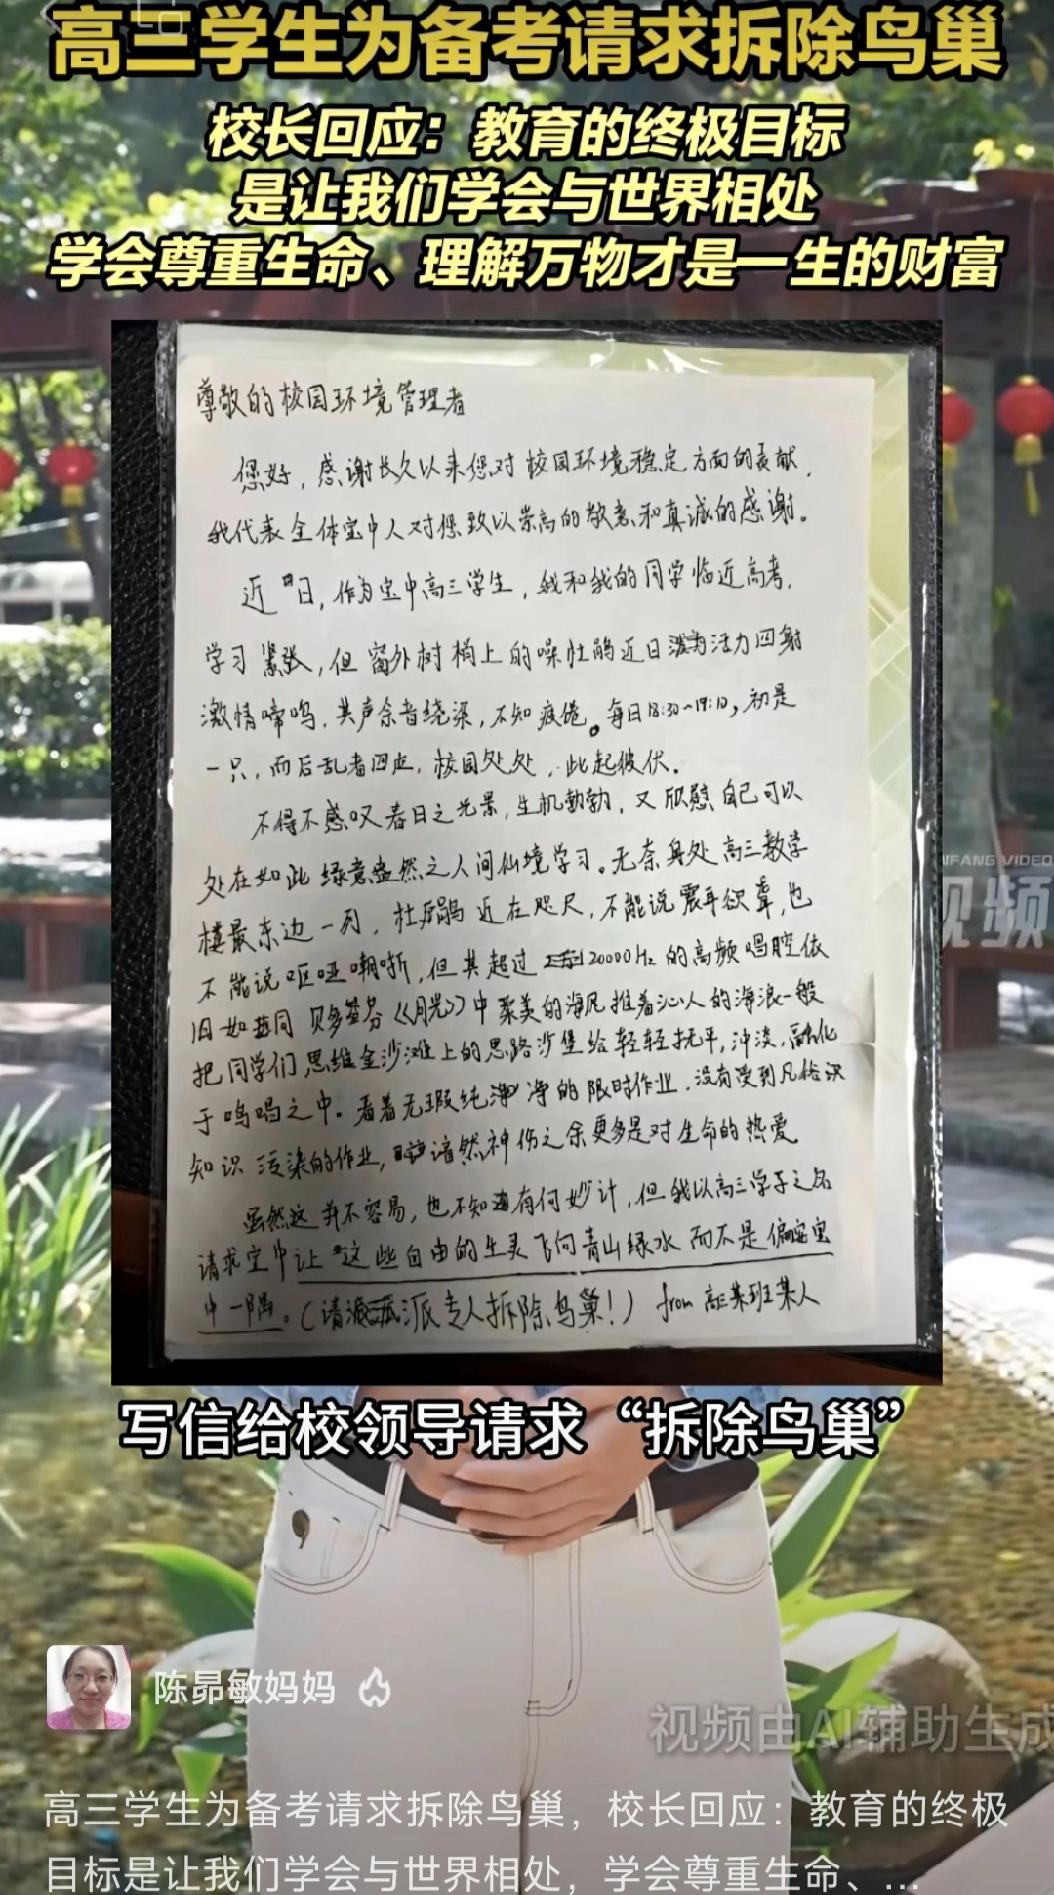 高三学生为备考请求拆除鸟巢
校长回应：教育的终极目标
是让我们学会与世界相处
学会尊重生命、理解万物才是一生的财富
尊敬的校园环境管理者
您好，感谢长久以来您对校园环境稳定方面的贡献，
我代表全体宝中人对您致以崇高的敬意和真诚的感谢。
近日，作为宝中高三学生，我和我的同学临近高考，
学习紧张，但窗外树梢上的噪杜鹃近日活力四射
激情啼鸣，其声余音绕梁，不知疲倦。每日18:30~19:10，初是
一只，而后乱者四应，校园处处，此起彼伏。
不得不感叹春日之光景，生机勃勃，又欣慰自己可以
处在如此绿意盎然之人间仙境学习。无奈身处高三教学
楼最东边一列，杜鹃近在咫尺，不能说震耳欲聋，也
不能说呕哑嘲哳，但其超过20000Hz的高频唱腔依
旧如同贝多芬《月光》中柔美的海风推着沁人的海浪一般
把同学们思维金沙滩上的思路沙堡给轻轻抚平，冲淡，融化
于鸣唱之中。看着无瑕纯净的限时作业，没有受到凡俗识
知识污染的作业，谙然神伤之余更多是对生命的热爱
虽然这并不容易，也不知道有何妙计，但我以高三学子之名
请求宝中让这些自由的生灵飞向青山绿水而不是偏安宝
中一隅。（请派专人拆除鸟巢！） from 高三某班某人
NFANG VIDEO
视频
写信给校领导请求“拆除鸟巢”
陈昂敏妈妈
视频由AI辅助生成
高三学生为备考请求拆除鸟巢，校长回应：教育的终极
目标是让我们学会与世界相处，学会尊重生命、...